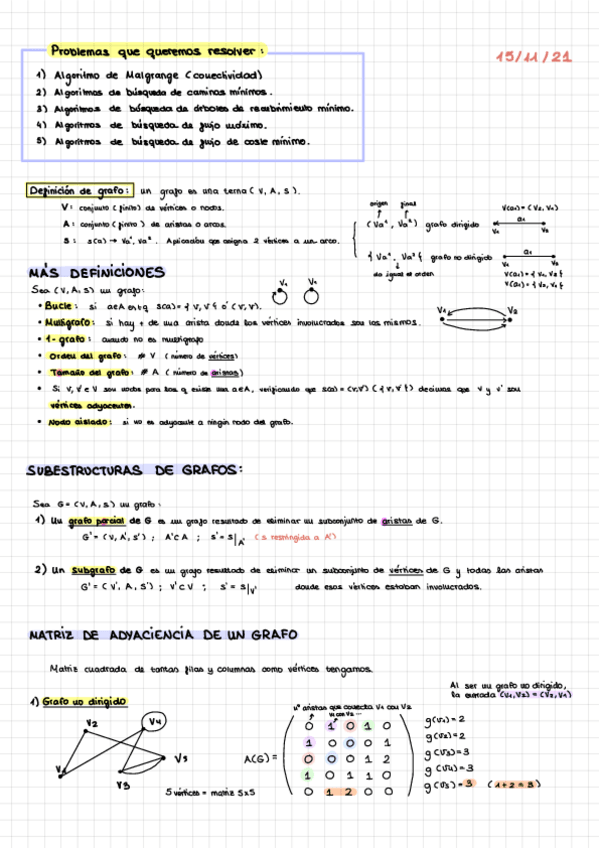 Problemas que queremos resolver:
15/11/21
1) Algoritmo de Malgrange (conectividad)
2) Algoritmos de búsqueda de caminos mínimos.
3) Algoritmos de búsqueda de árboles de recubrimiento mínimo.
4) Algoritmos de búsqueda de flujo máximo.
5) Algoritmos de búsqueda de flujo de coste mínimo.
Definición de grafo: un grafo es una terna (V, A, S).
V: conjunto (finito) de vértices o nodos.
A: conjunto (finito) de aristas o arcos.
S: s(a) → Va¹, Va². Aplicación que asigna 2 vértices a un arco.
origen final
(Va¹, Va²) grafo dirigido
{Va¹, Va²} grafo no dirigido
da igual el orden
V(a1) = (V2, V1)
a1
V1 V2
a1
V1 V2
V(a1) = {V1, V2}
V(a1) = {V2, V1}
MÁS DEFINICIONES
Sea (V, A, S) un grafo:
• Bucle: si a∈A en q s(a) = {V, V} o (V, V).
V1 V1
• Multigrafo: si hay + de una arista donde los vértices involucrados son los mismos.
V1 V2
• 1-grafo: cuando no es multigrafo
• Orden del grafo: # V (número de vértices)
• Tamaño del grafo: # A (número de aristas)
• Si V, V' ∈ V son nodos para los q existe una a∈A, verificando que s(a) = (V, V') ({V, V'}) decimos que V y V' son
vértices adyacentes.
• Nodo aislado: si no es adyacente a ningún nodo del grafo.
SUBESTRUCTURAS DE GRAFOS:
Sea G = (V, A, S) un grafo:
1) Un grafo parcial de G es un grafo resultado de eliminar un subconjunto de aristas de G.
G' = (V, A', S') ; A' ⊂ A ; S' = S|A' (S restringida a A')
2) Un subgrafo de G es un grafo resultado de eliminar un subconjunto de vértices de G y todas las aristas
G' = (V', A, S') ; V' ⊂ V ; S' = S|V' donde esos vértices estaban involucrados.
MATRIZ DE ADYACIENCIA DE UN GRAFO
Matriz cuadrada de tantas filas y columnas como vértices tengamos.
Al ser un grafo no dirigido,
la entrada (V1, V2) = (V2, V1)
1) Grafo no dirigido
V2 V4
V1 V3 V5
5 vértices = matriz 5x5
nº aristas que conecta V1 con V2
A(G) =
0 1 0 1 0
1 0 0 0 1
0 0 0 1 2
1 0 1 1 0
0 1 2 0 0
g(V1) = 2
g(V2) = 2
g(V3) = 3
g(V4) = 3
g(V5) = 3 (1+2=3)